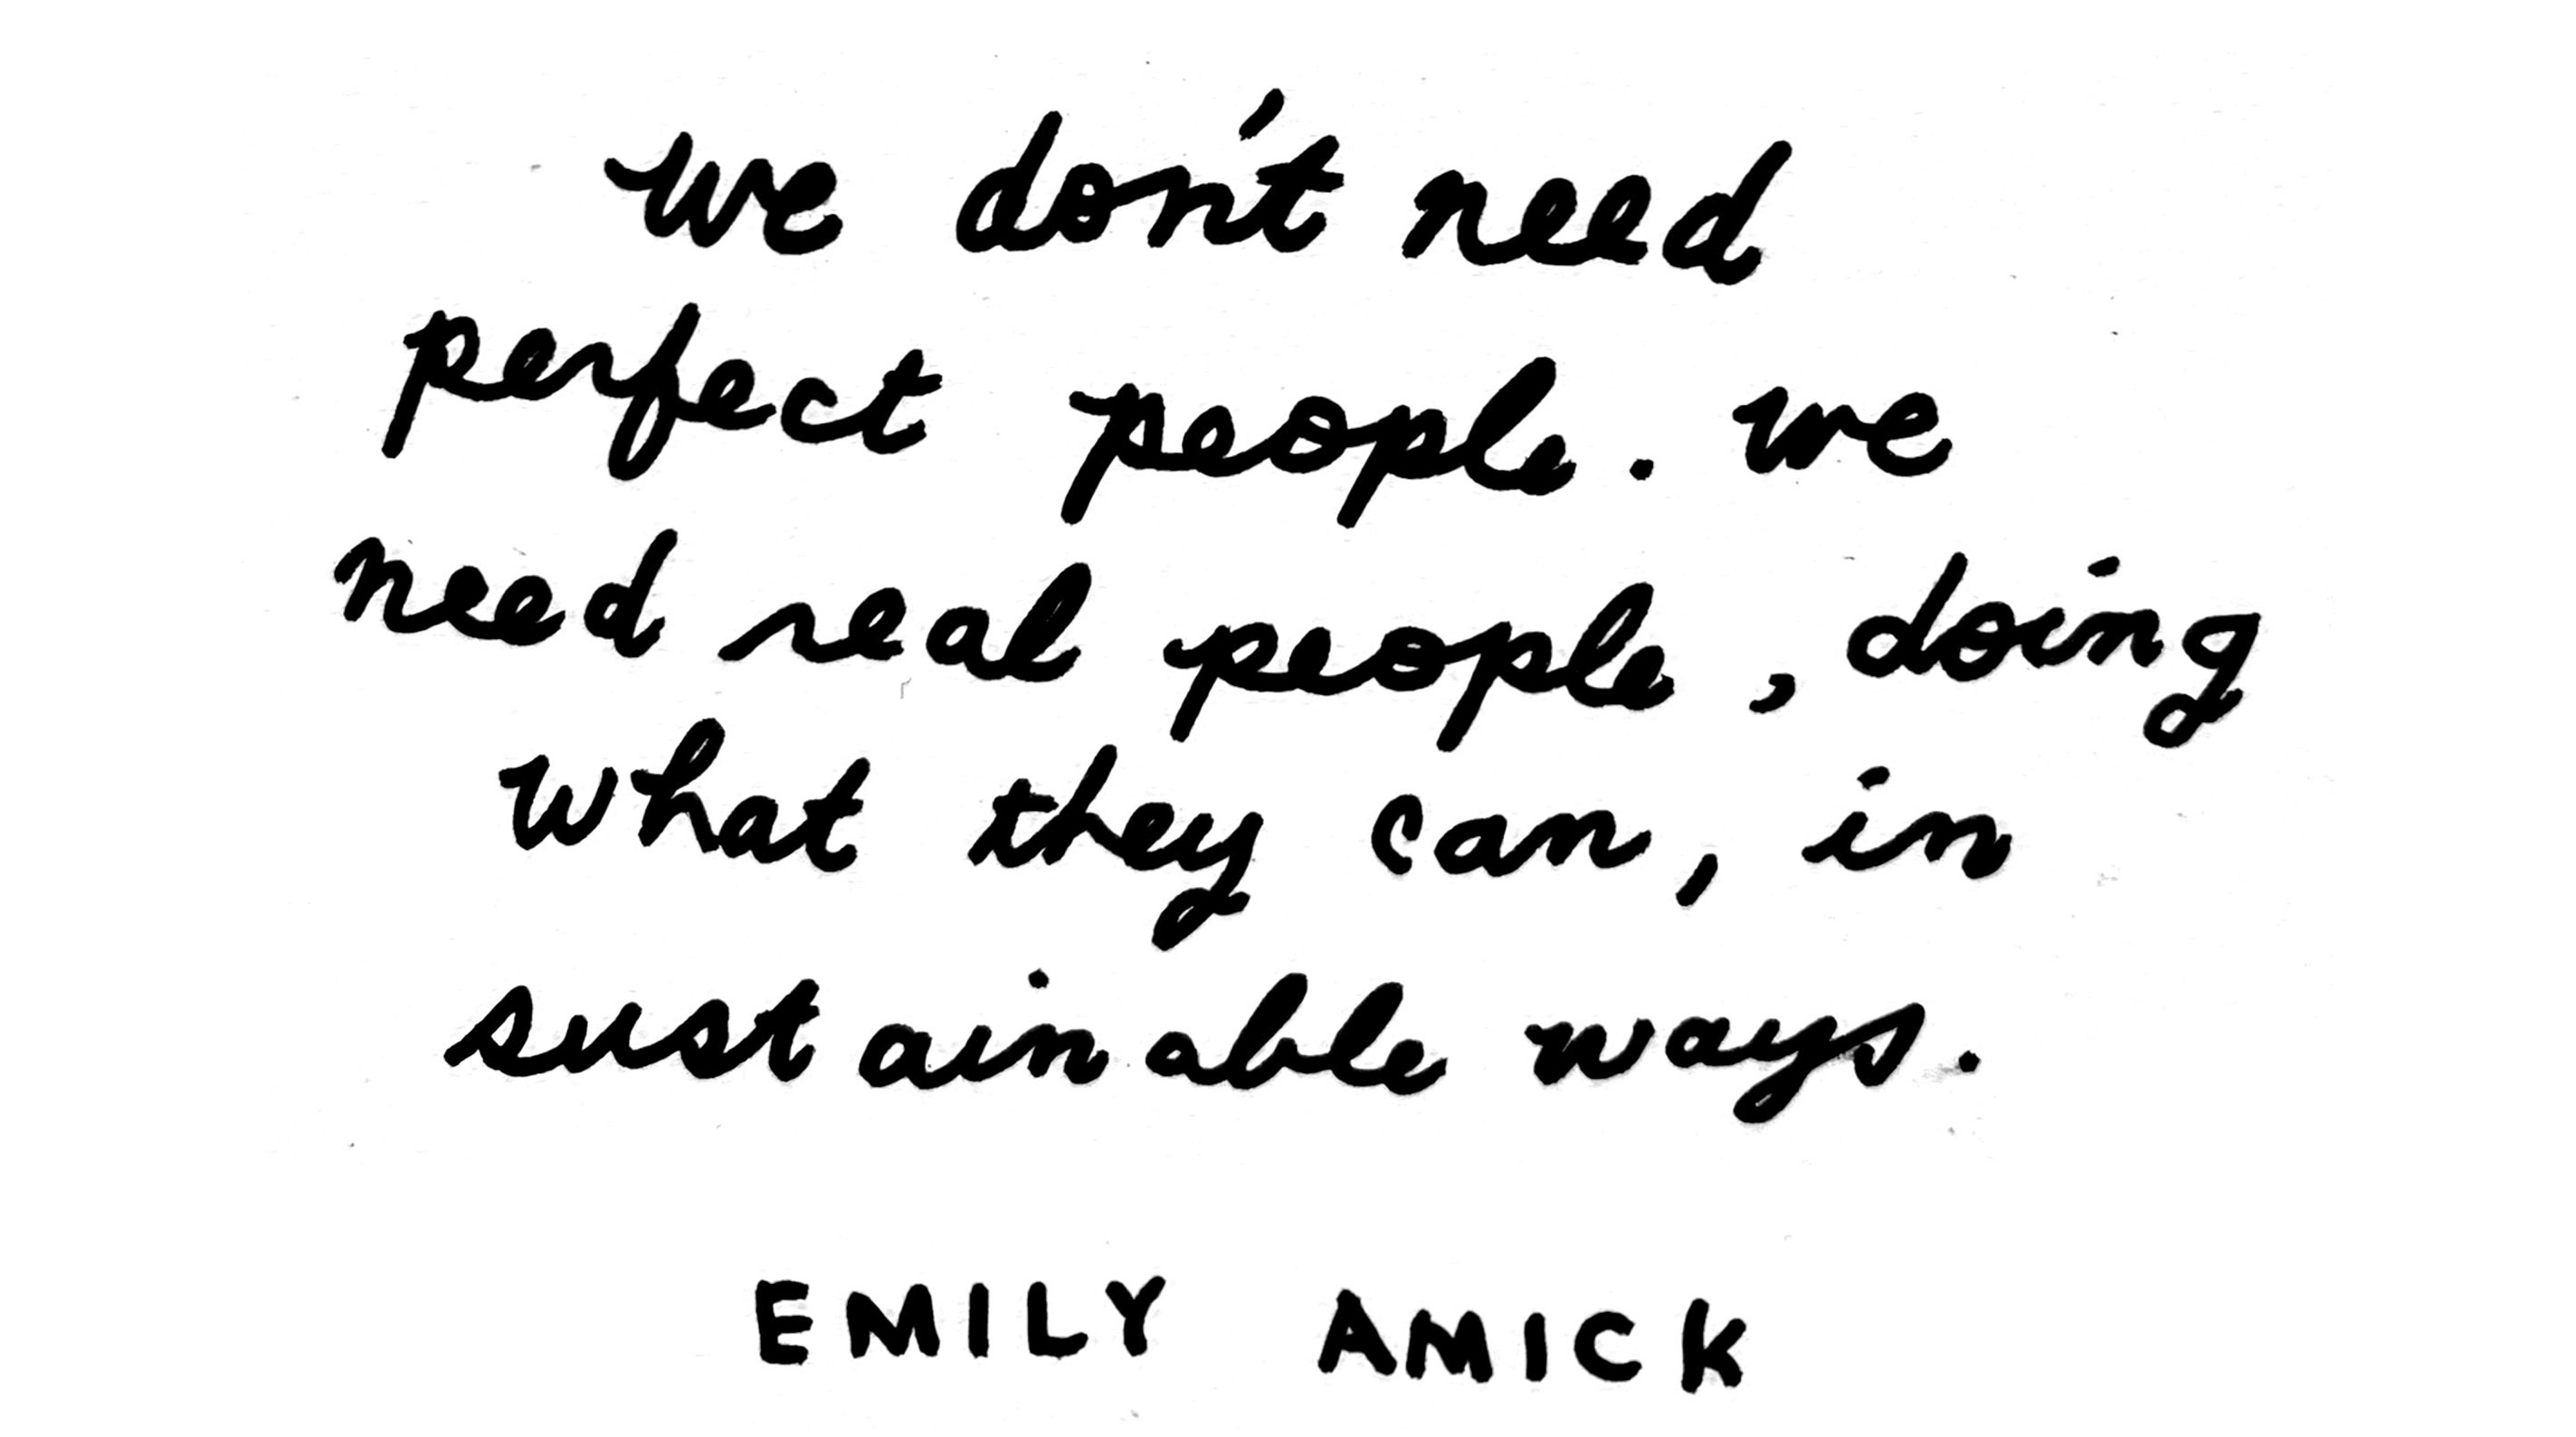 we don't need
perfect people. we
need real people, doing
what they can, in
sustainable ways.
EMILY AMICK